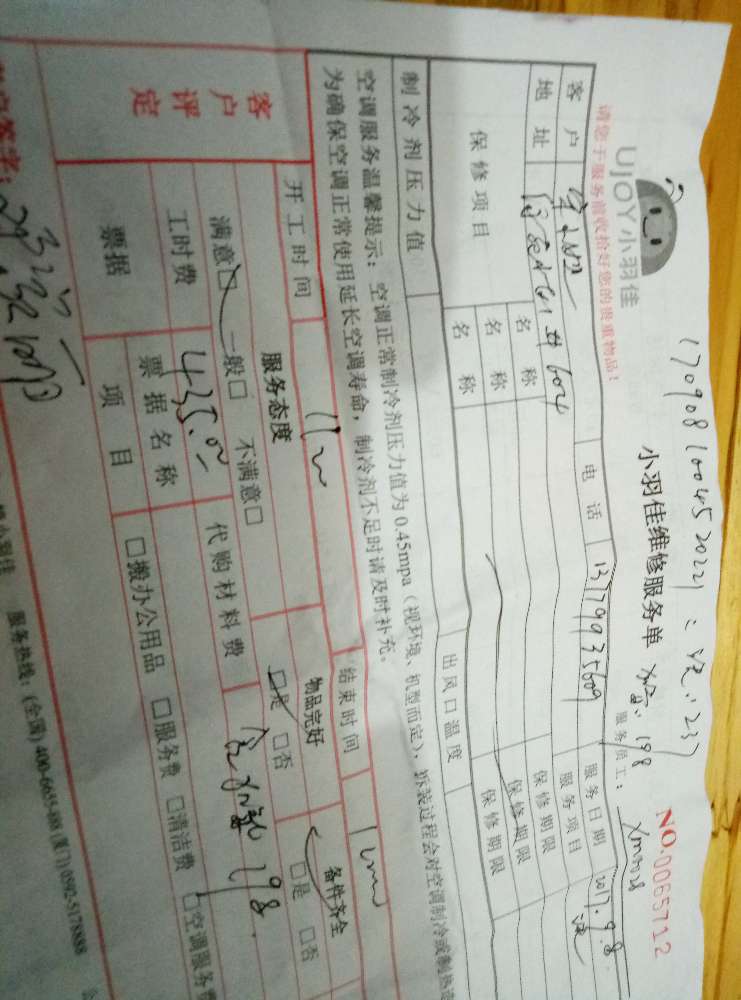 1709081004520221
UJOY小羽佳
小羽佳维修服务单
NO.0065712
请您于服务前收拾好您的贵重物品！
服务员工： xm0028
客户
电话 13779935609
服务日期 2017.9.8
地址
604
服务项目
保修项目
名称
保修期限
名称
保修期限
名称
保修期限
制冷剂压力值
出风口温度
空调服务温馨提示：空调正常制冷剂压力值为0.45mpa（视环境、机型而定），拆装过程会对空调制冷或制热
为确保空调正常使用延长空调寿命，制冷剂不足时请及时补充。
开工时间
结束时间
客户评定
服务态度
物品完好
备件齐全
满意□ 一般□ 不满意□
□是 □否
□是 □否
工时费 435.00
代购材料费
198
票据
票据名称
项目
□搬办公用品 □服务费 □清洁费 □空调服务费
客户签字：
小羽佳 服务热线：(全国) 400-6655-888 (厦门) 0592-5178888